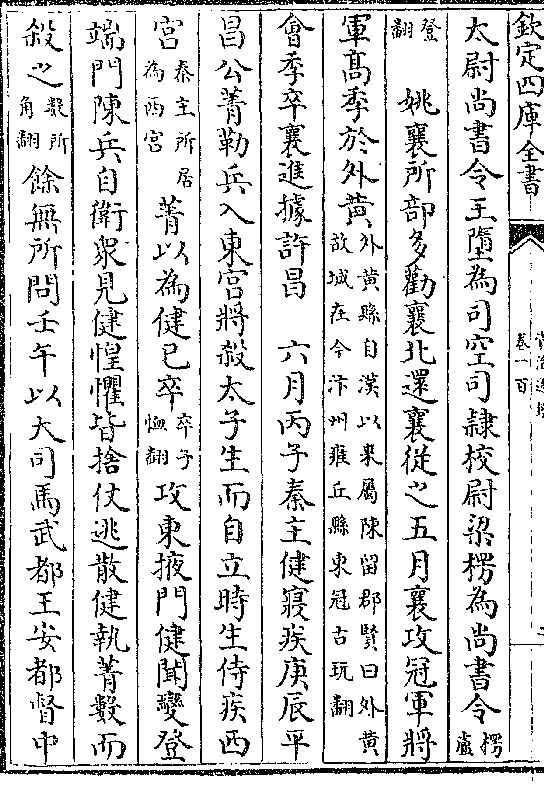 欽定四庫全書
卷一百
太尉尚書令王墮為司空司隸校尉梁楞為尚書令楞盧
登翻　姚襄所部多勸襄北還襄從之五月襄攻冠軍將
軍高季於外黄外黄縣自漢以來屬陳留郡賢曰外黄故城在今汴州雍丘縣東冠古玩翻
會季卒襄進據許昌　六月丙子秦主健寢疾庚辰平
昌公菁勒兵入東宫將殺太子生而自立時生侍疾西
宫秦主所居為西宫菁以為健已卒卒子恤翻攻東掖門健聞變登
端門陳兵自衛衆見健惶懼皆捨仗逃散健執菁數而
殺之數所角翻餘無所問壬午以大司馬武都王安都督中